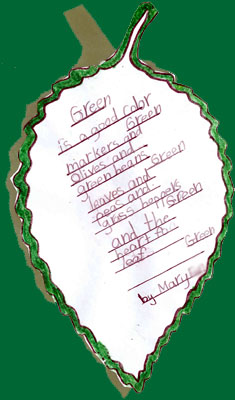 Green
is a good color
Green
markers and
olives and
green beans
Green
leaves and
peas and
grasshoppers
Green
and the
heart
leaf
Green
by Mary